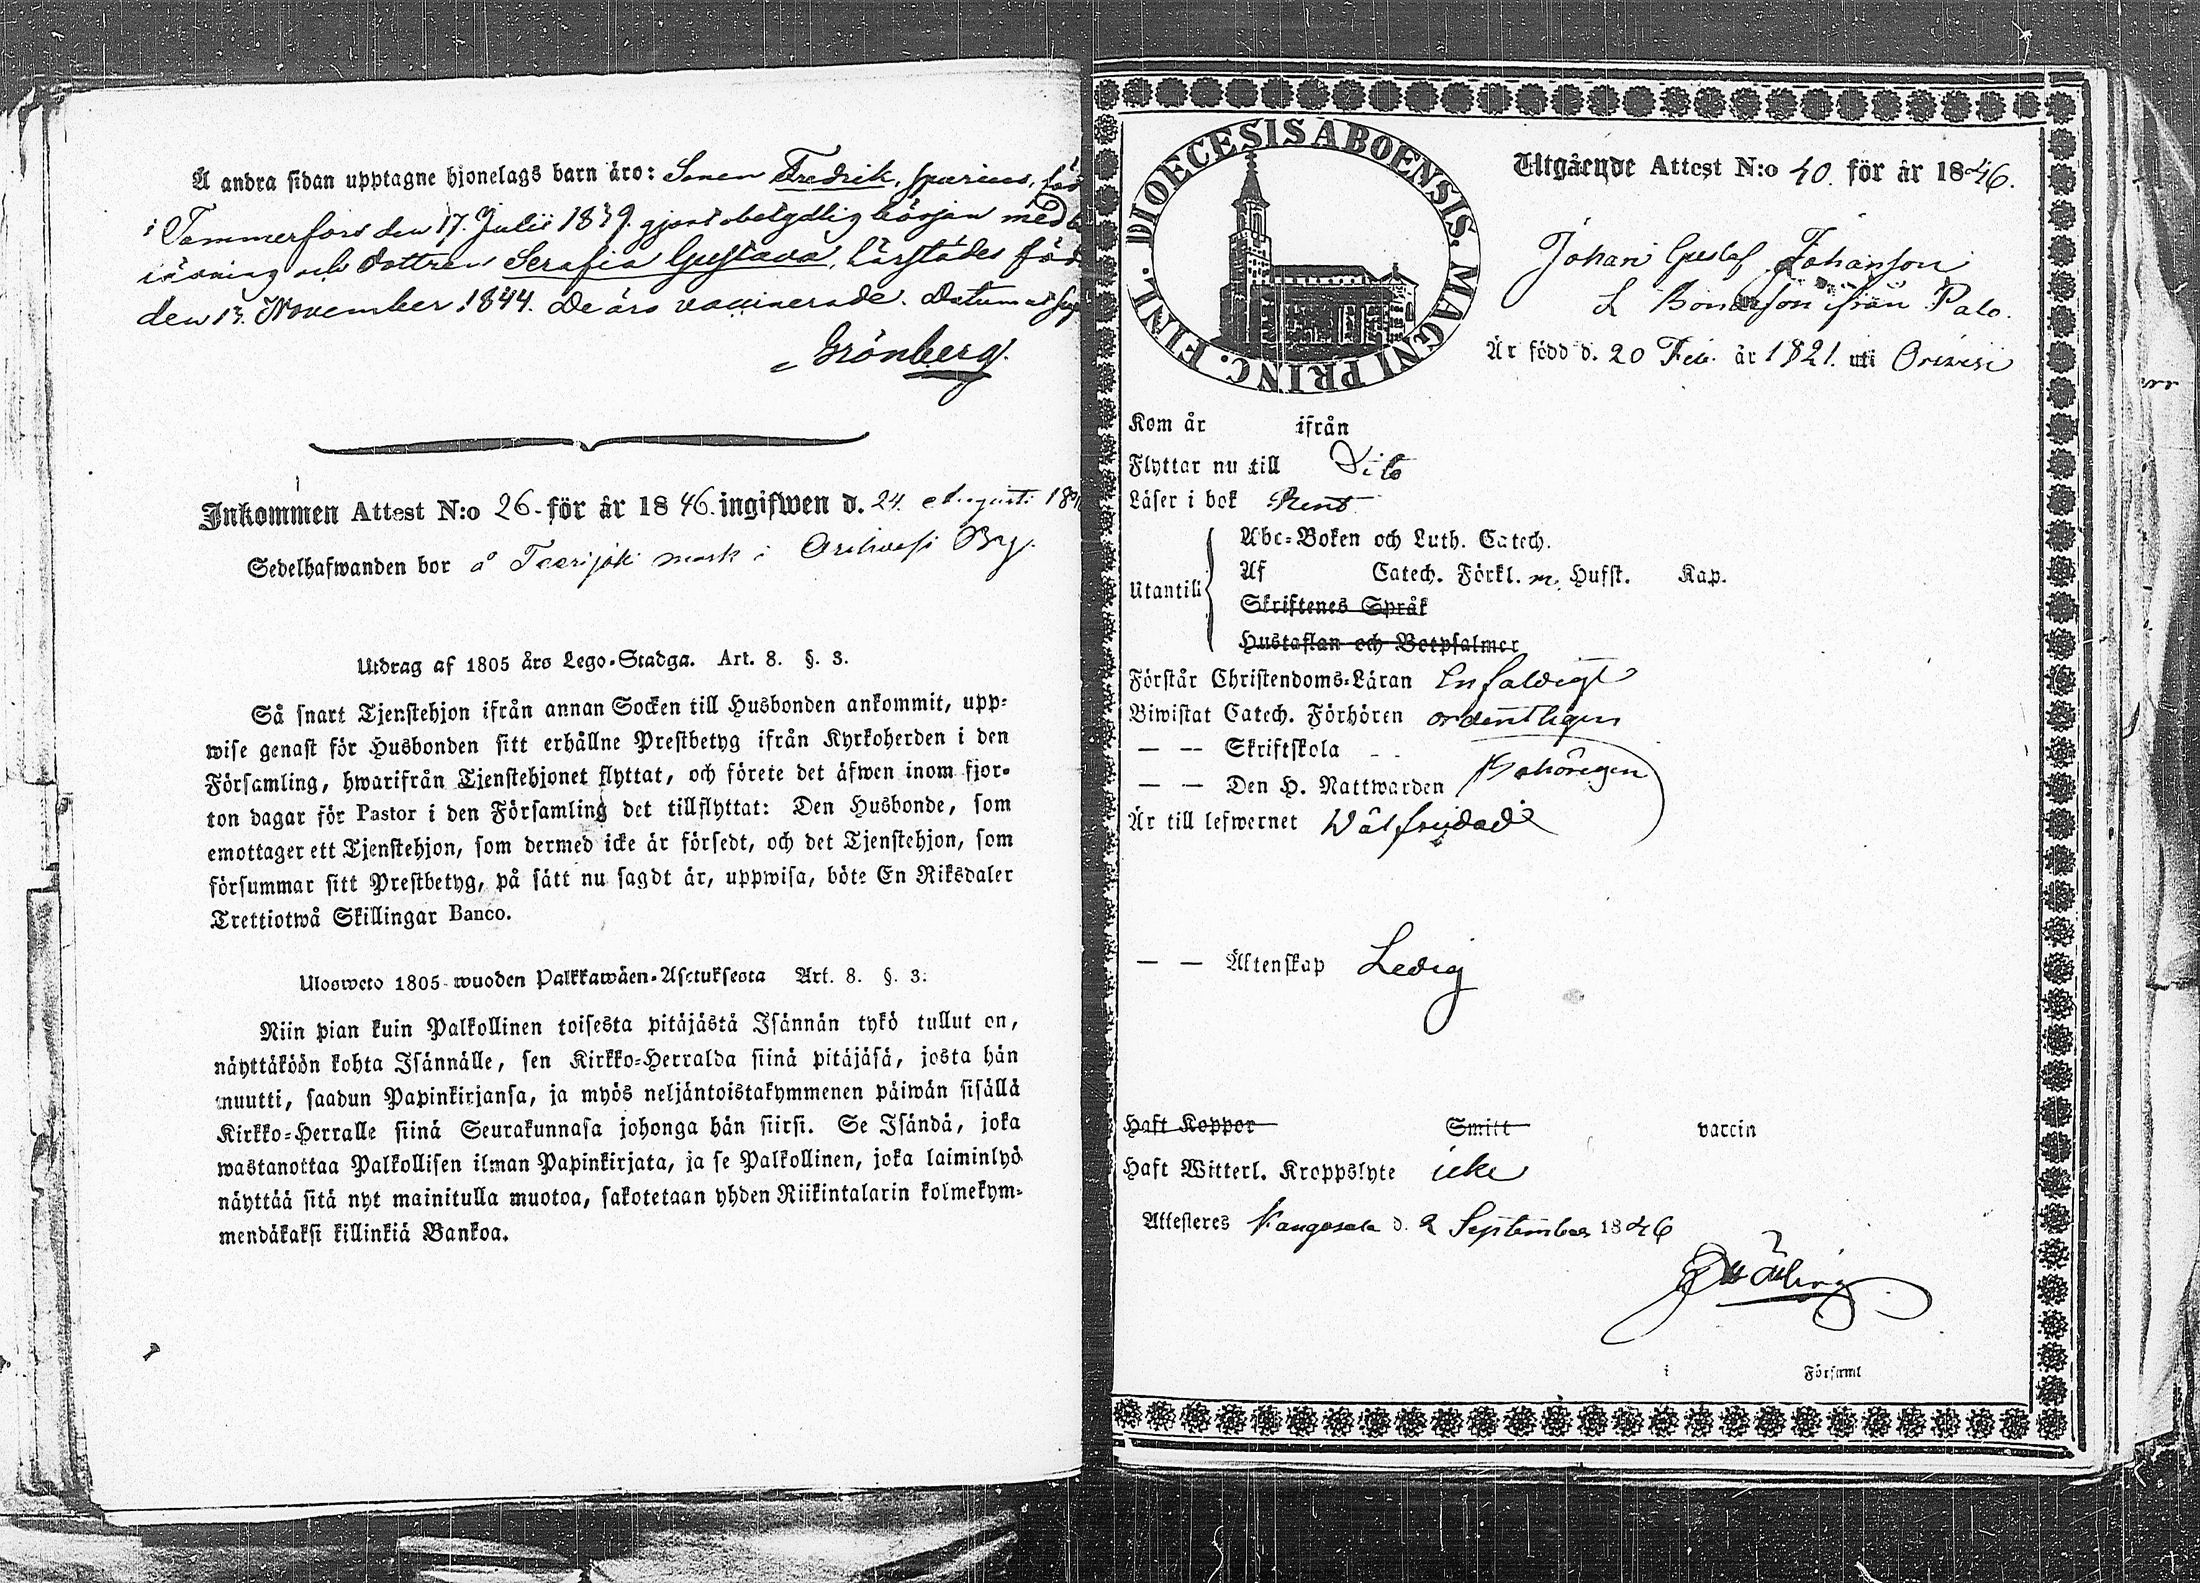 Å andra sidan upptagne hjonelags barn äro: Sonen Fredrik, spurius, föd
i Tammerfors den 17. Julii 1839. gjort obetydlig början med
och dottren Serafia Gustava, därstädes född
den 13. November 1844. De äro vaccinerade. Datum ut sup
Grönberg.
Inkommen Attest N:o 26. för år 1846. ingifwen d. 24. Augusti 18
Sedelhafwanden bor å Teerijoki mark i Orihvesi By.
Utdrag af 1805 års Lego-Stadga. Art. 8. §. 3.
Så snart Tjenstehjon ifrån annan Socken till Husbonden ankommit, upp-
wise genast för Husbonden sitt erhållne Prestbetyg ifrån Kyrkoherden i den
Församling, hwarifrån Tjenstehjonet flyttat, och förete det äfwen inom fjor-
ton dagar för Pastor i den Församling det tillflyttat: Den Husbonde, som
emottager ett Tjenstehjon, som dermed icke är försedt, och det Tjenstehjon, som
försummar sitt Prestbetyg, på sätt nu sagdt är, uppwisa, böte En Riksdaler
Trettiotwå Skillingar Banco.
Ulosweto 1805 wuoden Palkkawäen-Asetuksesta Art. 8. §. 3.
Niin pian kuin Palkollinen toisesta pitäjästä Isännän tykö tullut on,
näyttäköön kohta Isännälle, sen Kirkko-Herralda siinä pitäjäsä, josta hän
muutti, saadun Papinkirjansa, ja myös neljäntoistakymmenen päiwän sisällä
Kirkko-Herralle siinä Seurakunnasa johonga hän siirsi. Se Isändä, joka
wastanottaa Palkollisen ilman Papinkirjata, ja se Palkollinen, joka laiminlyö
näyttää sitä nyt mainitulla muotoa, sakotetaan yhden Riikintalarin kolmekym-
mendäkaksi killinkiä Bankoa.
DIOECESIS ABOENSIS. MAGNI PRINC. FINL.
Utgående Attest N:o 40. för år 1846.
Johan Gustaf Johansson
Bondeson ifrån Palo.
Är född d. 20 Feb. år 1821. uti Orivesi
Kom år ifrån
Flyttar nu till Dito
Läser i bok Rent
Utantill
Abc-Boken och Luth. Catech.
Af Catech. Förkl. m. Hufst. Kap.
Skriftenes Språk
Hustaflan och Botpsalmer
Förstår Christendoms-Läran Enfaldigt
Biwistat Catech. Förhören ordentligen
— — Skriftskola
— — Den H. Nattwarden behörigen
Är till lefwernet Wälfrejdad
— — Äktenskap Ledig
Haft Koppor Smitt vaccin
Haft Witterl. Kroppslyte icke
Attesteres Kangasala d. 2 September 1846
i Församl